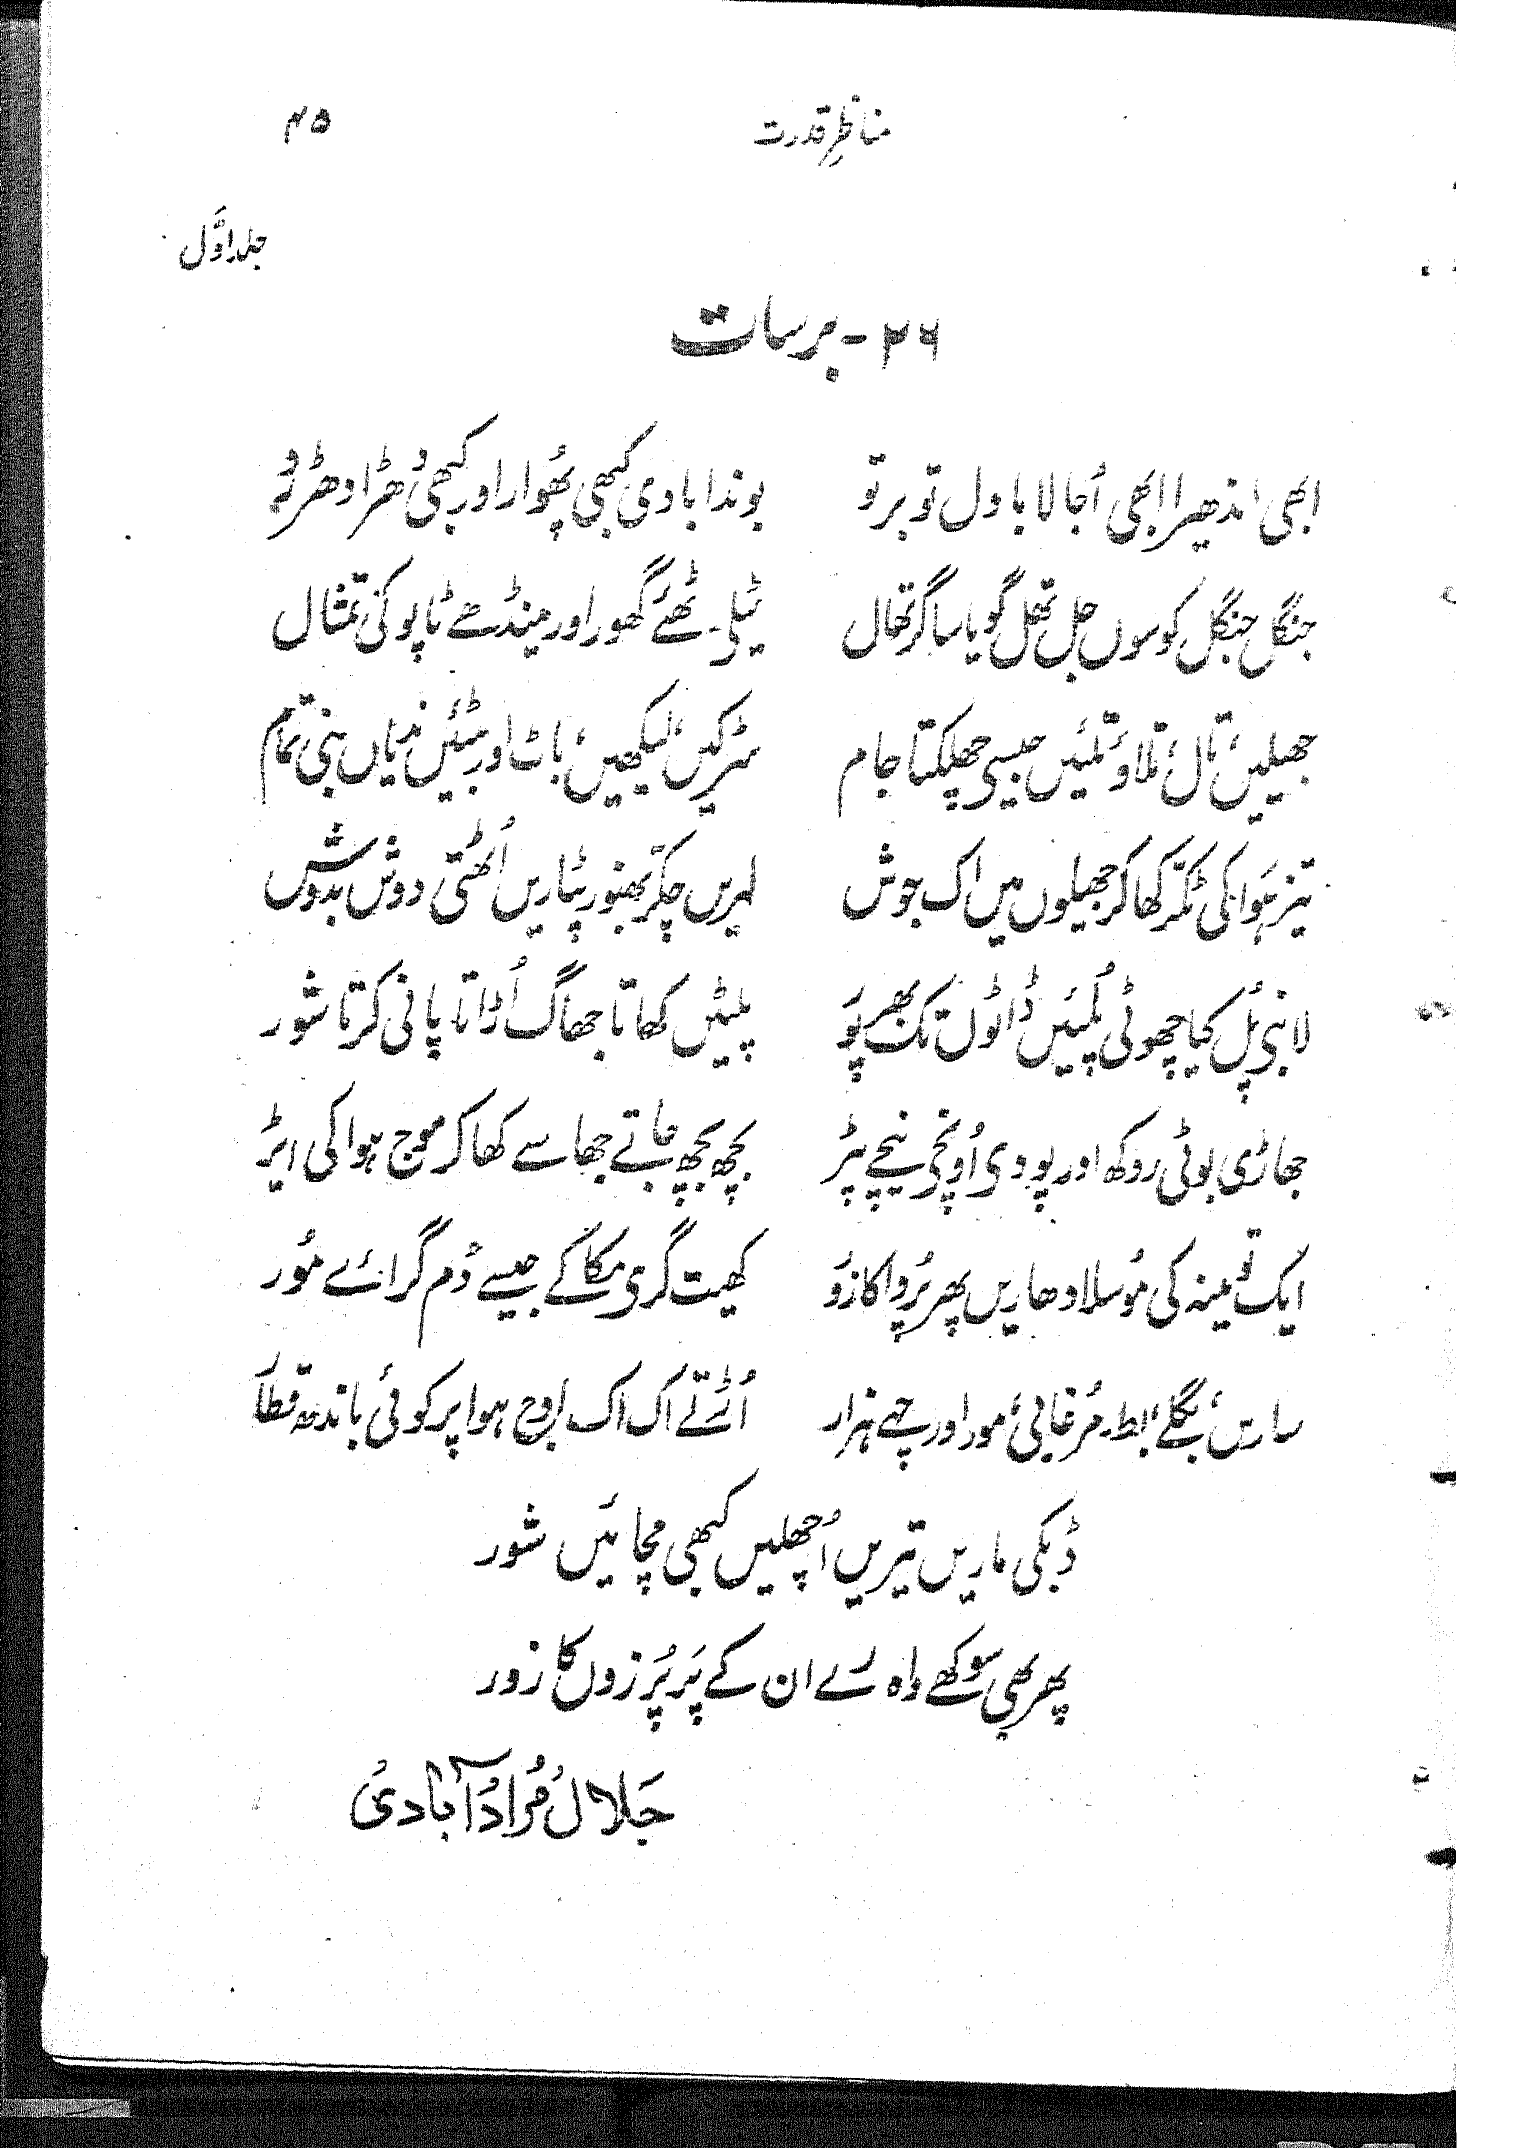 مناظرِ قدرت ۴۵
جلد اوّل
۲۶ - برسات
ابھی اندھیرا ابھی اُجالا بادل تو بر تو بوندا باندی کبھی پھُوار اور کبھی دُھڑا دھڑ
جنگل جنگل کوسوں جل تھل گویا ساگر تھال ٹیلی۔ ٹھئے گھور اور مینڈھے ٹاپو کی تمثال
جھیلیں، تال، تلاؤ تلئیں جیسی چھلکتا جام سڑکیں، لیکھیں، باٹ اور بٹئیں ندیاں بنی تمام
تیز ہَوا کی ٹکّر کھا کر جھیلوں میں اک جوش لہریں چکّر بھنور پٹاریں اُٹھتی دوش بدوش
لانبی پُل کیا چھوٹی پُلئیں ڈاٹوں تک بھر پَو پلیٹیں کھاتا جھاگ اُڑاتا پانی کرتا شور
جھاڑی بوٹی روکھ اور پودی اُونچی نیچے پیڑ بچھ بچھ جاتے جھاسے کھا کر موج ہوا کی ایڑ
ایک تو مینہ کی مُوسلا دھاریں پھر پُروا کا زو کھیت گری مکا کے جیسے دُم گرائے مُور
سارس، بگلے، بط۔ مُرغابی، مور اور چہے ہزار اُڑتے اک اک اوج ہوا پر کوئی باندھ قطا
ڈبکی ماریں تیریں اُچھلیں کبھی مچائیں شور
پھر بھی سوکھے واہ رے ان کے پَر پُرزوں کا زور
جلال مُراد آبادی